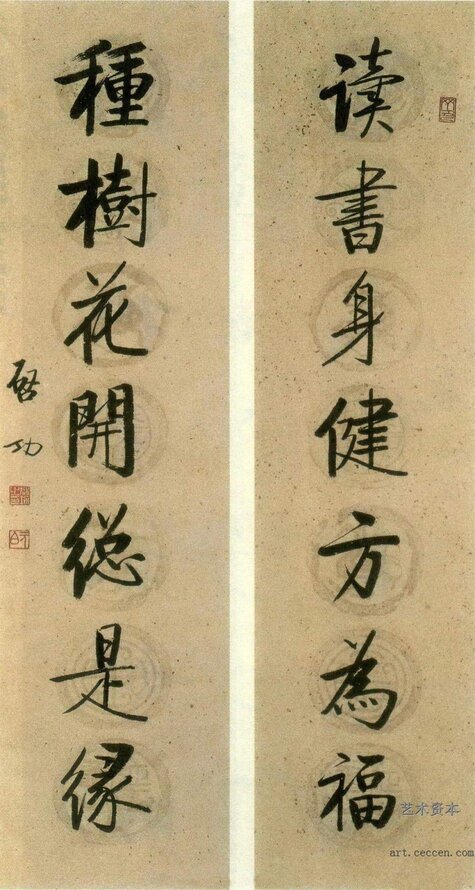 读书身健方為福
種樹花開總是緣
啓功
艺术资本
art.ceccen.com